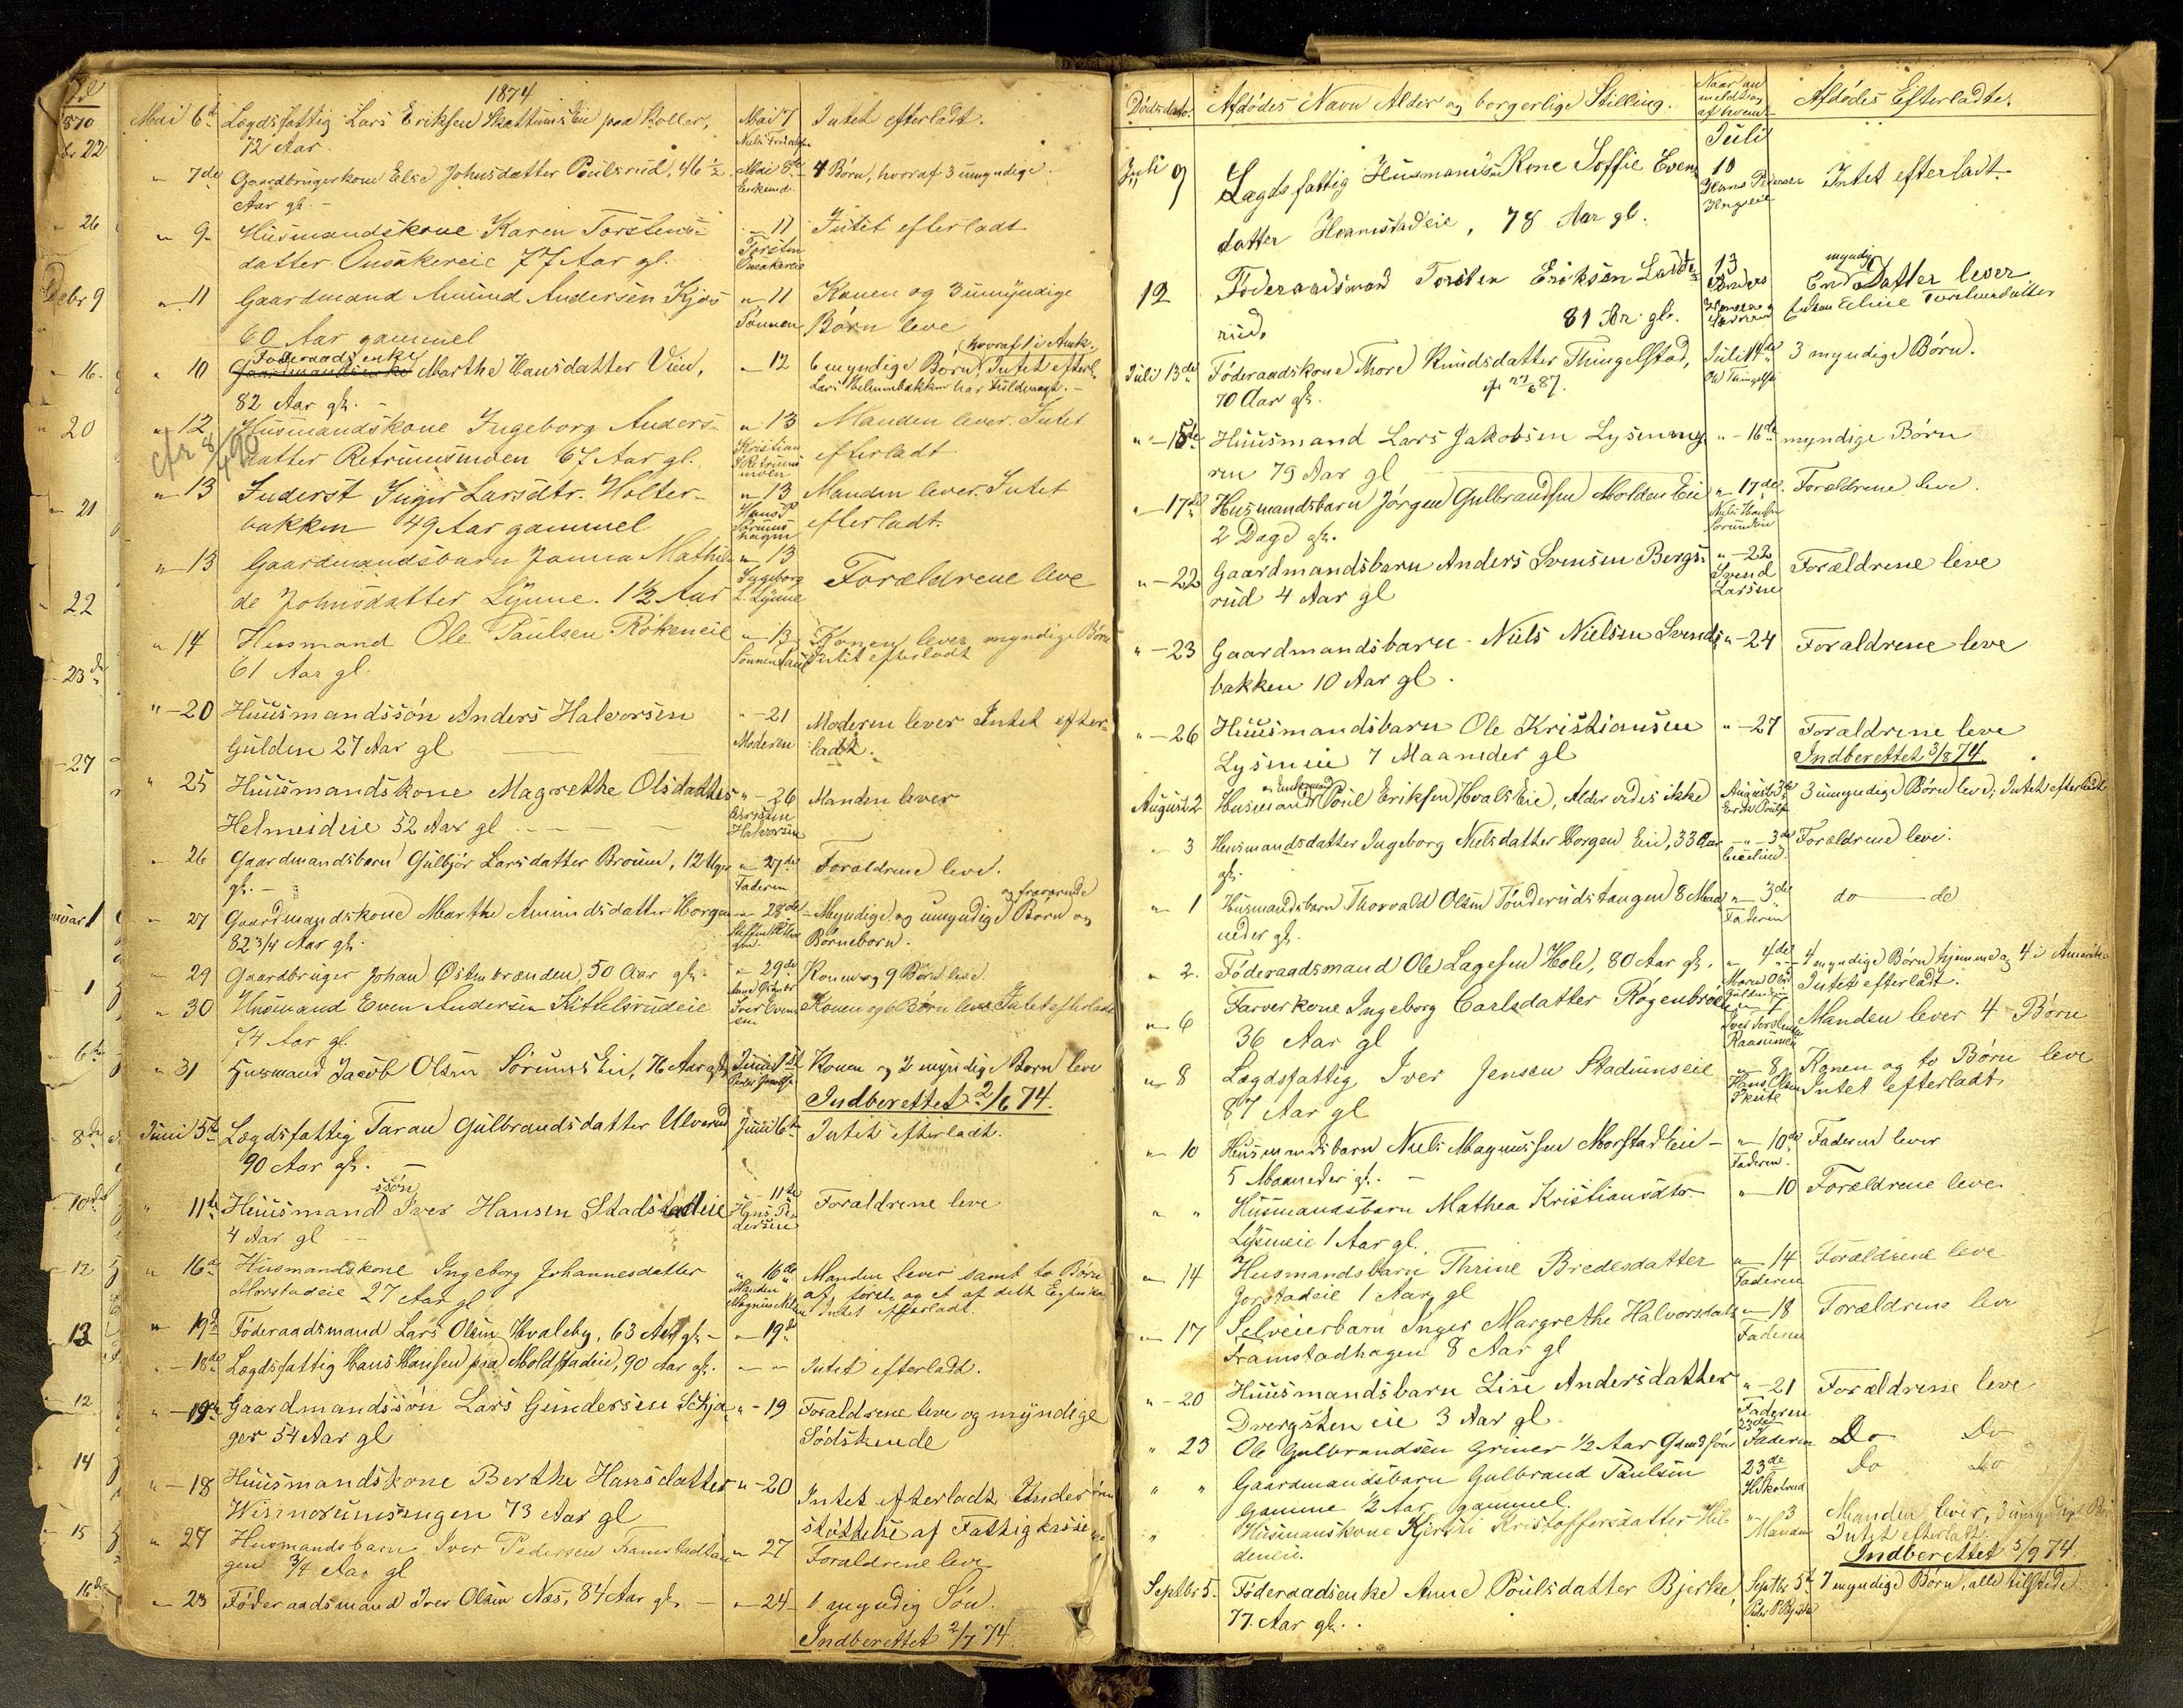 1874
Mai 6te Lægdsfattig Lars Eriksen Skattums Eie paa Koller, Mai 7 Intet efterladt.
72 Aar.
" 7de Gaardbrugerkone Else Johnsdatter Poulsrud, 46 ½ Mai 8de 4 Børn, hvoraf 3 umyndige.
Aar gl. -
" 9 Husmandskone Karin Torstens- " 11 Intet efterladt
datter Onsakereie 77 Aar gl. Torsten Onsakereie
" 11 Gaardmand Amund Andersen Kjos " 11 Konen og 3 umyndige
60 Aar gammel Sønnen Børn leve
Føderaadsenke hvoraf 1 i Amk.
" 10 Marthe Hansdatter Vien, " 12 6 myndige Børn Intet efterl.
82 Aar gl. - Lars har Fuldmagt. -
" 12 Husmandskone Ingeborg Anders- " 13 Manden lever. Intet
cfr 8/4 90 datter Retrumsmoen 67 Aar gl. Kristian Retrums moen efterladt
" 13 Inderst Inger Larsdtr. Holter- " 13 Manden lever. Intet
bakken 49 Aar gammel Hans Sørums hagen efterladt
" 13 Gaardmandsbarn Janna Mathil- " 13
de Johnsdatter Lynne. 1½ Aar Ingeborg L. Lynne Forældrene leve
" 14 Husmand Ole Paulsen Røkeneie " 13 Konen lever myndige Børn
61 Aar gl. Sønnen Intet efterladt
" - 20 Huusmandssøn Anders Halvorsen " - 21 Moderen lever Intet efter-
Gulden 27 Aar gl Moderen ladt.
" 25 Huusmandskone Magrethe Olsdatter " - 26 Manden lever
Helmeideie 52 Aar gl Halvorsen
" 26 Gaardmandsbarn Gulbjør Larsdatter Broum, 12 Uger " 27de Forældrene leve.
gl. - Faderen
og fraværende
" 27 Gaardmandskone Marthe Amundsdatter Horgen " 28de Myndige og umyndige Børn og
82 3/4 Aar gl. Børnebørn.
" 29 Gaardbruger Johan Østenbrænden, 50 Aar gl. " 29de Konen og 9 Børn leve.
" 30 Husmand Even Andersen Kittelsrudeie Iver Evensen Konen og 6 Børn leve Intet efterladt
74 Aar gl.
" 31 Husmand Jacob Olsen Sørums Eie, 76 Aar gl. Juni 1st Konen og 2 myndige Børn leve
Indberettet 2/6 74.
Juni 5te Lægdsfattig Taran Gulbrandsdatter Ulverud Juni 6te Intet efterladt.
90 Aar gl. -
ssøn
" 11te Huusmand Iver Hansen Stadstadeie 11te Forældrene leve
4 Aar gl - Hans Pedersen
" 16de Husmandskone Ingeborg Johannesdatter " 16de Manden lever samt to Børn
Morstadeie 27 Aar gl Manden af første og et af dette Egteskab
Intet efterladt.
" 19de Føderaadsmand Lars Olsen Hvaleby, 63 Aar gl. - " 19de
" - 18de Lægdsfattig Hans Hansen paa Moldstadeie, 90 Aar gl. " " Intet efterladt.
" - 19de Gaardmandssøn Lars Gundersen Skja- " - 19 Forældrene leve og myndige
ger 54 Aar gl Sødskende
" - 18 Huusmandskone Berthe Hansdatter " - 20 Intet efterladt Under
Wisnorumsengen 73 Aar gl støttelse af Fattigkassen
" 27 Husmandsbarn Iver Pedersen Framstadhau- " 27 Forældrene leve
gen 3/4 Aar gl
" 23 Føderaadsmand Iver Olsen Næs, 84 Aar gl. - " 24 1 myndig Søn.
Indberettet 2/7 74.
Dødsdato. Afdødes Navn Alder og borgerlige Stilling. Naar anmeldt og af hvem Afdødes Efterladte.
Juli
Juli 9 Lægdsfattig Husmands Kone Soffie Evens 10 Intet efterladt
datter Hvamstadeie, 78 Aar gl. Hans Pedersen
myndig
12 Føderaadsmand Torsten Eriksen 13 En Datter lever
rud, 81 Aar gl. Enken Eline Torstensdatter
Juli 13de Føderaadskone Thore Knudsdatter Thingelstad, Juli 14de 3 myndige Børn.
70 Aar gl. Ole Thingelstad
" - 15de Huusmand Lars Jakobsen Lysening " - 16de myndige Børn
ren 79 Aar gl
" - 17de Husmandsbarn Jørgen Gulbrandsen Molden Eie " 17de Forældrene leve.
2 Dage gl. Niels Hansen
" - 22 Gaardmandsbarn Anders Svensen Bergs- " - 22 Forældrene leve
rud 4 Aar gl Svend Larsen
" - 23 Gaardmandsbarn - Niels Nielsen Svends " - 24 Forældrene leve
bakken 10 Aar gl.
" - 26 Huusmandsbarn Ole Kristiansen " - 27 Forældrene leve
Lyseneie 7 Maaneder gl Indberettet 3/8 74.
Enkemand
August 2 Husmand Poul Eriksen Hvals Eie, Alder vides ikke August 3de 3 umyndige Børn leve, Intet efterladt
" 3 Husmandsdatter Ingeborg Nielsdatter Horgen Eie, 33 Aar " " 3de Forældrene leve.
gl.
" 1 Husmandsbarn Thorvald Olsen Tønderudstangen 8 Maa- " 3de do do
neder gl. Faderen
" 2. Føderaadsmand Ole Lagesen Hole, 80 Aar gl. " 4de 4 myndige Børn hjemme og 4 i Amerika
Intet efterladt.
" 6 Farverkone Ingeborg Carlsdatter Røgenbroen " 7 Manden lever 4 Børn
36 Aar gl Iver Torstensen
" 8 Lægdsfattig Iver Jensen Stadumseie " 8 Konen og to Børn leve
87 Aar gl Hans Olsen Skute Intet efterladt
" 10 Husmandsbarn Niels Magnussen Morstad Eie - " 10de Faderen lever
5 Maaneder gl. - Faderen.
" " Husmandsbarn Mathea Kristiansdtr " 10 Forældrene leve
Lyseneie 1 Aar gl.
" 14 Husmandsbarn Thrine Bredesdatter " 14 Forældrene leve
Jorstadeie 1 Aar gl Faderen
" 17 Selveierbarn Inger Margrethe Halvorsdatt " 18 Forældrene leve
Framstadhagen 8 Aar gl Faderen
" - 20 Huusmandsbarn Lise Andersdatter " - 21 Forældrene leve
Dvergsten eie 3 Aar gl Faderen
" 23 Ole Gulbrandsen Griner ½ Aar Gmdsøn 23de Faderen Do Do
" " Gaardmandsbarn Gulbrand Paulsen 23de Do Do
Gamme ½ Aar gammel. H Skolrud
" Husmanskone Kjersti Kristoffersdatter Hil- " 3 Manden lever, 3 umyndige Børn
deneie. Manden Intet efterladt.
Indberettet 3/9 74
Septbr 5. Føderaadsenke Anne Poulsdatter Bjerke, Septbr 5te 7 myndige Børn, alle tilstede
77 Aar gl.